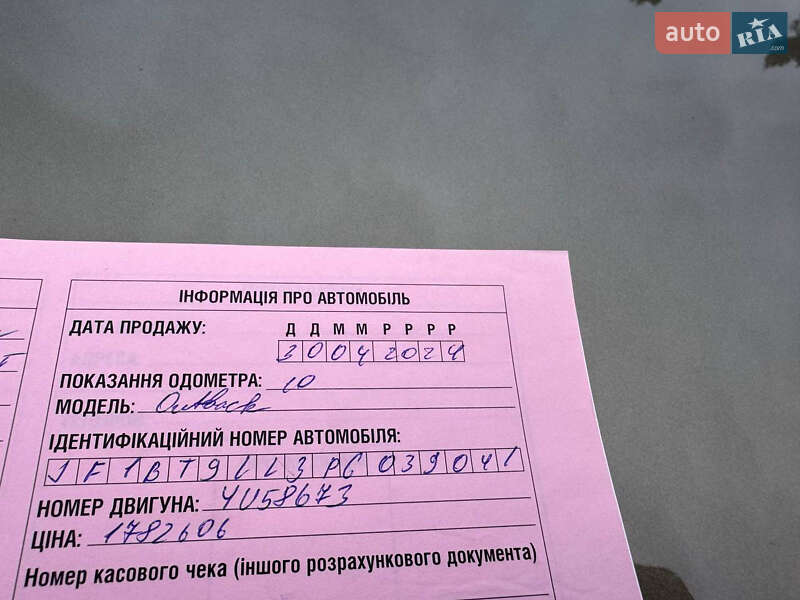 auto RIA.com
ІНФОРМАЦІЯ ПРО АВТОМОБІЛЬ
ДАТА ПРОДАЖУ: Д Д М М Р Р Р Р
30042024
ПОКАЗАННЯ ОДОМЕТРА: 10
МОДЕЛЬ: Outback
ІДЕНТИФІКАЦІЙНИЙ НОМЕР АВТОМОБІЛЯ:
JF1BT9LL3PG039041
НОМЕР ДВИГУНА: 4U58673
ЦІНА: 1782606
Номер касового чека (іншого розрахункового документа)